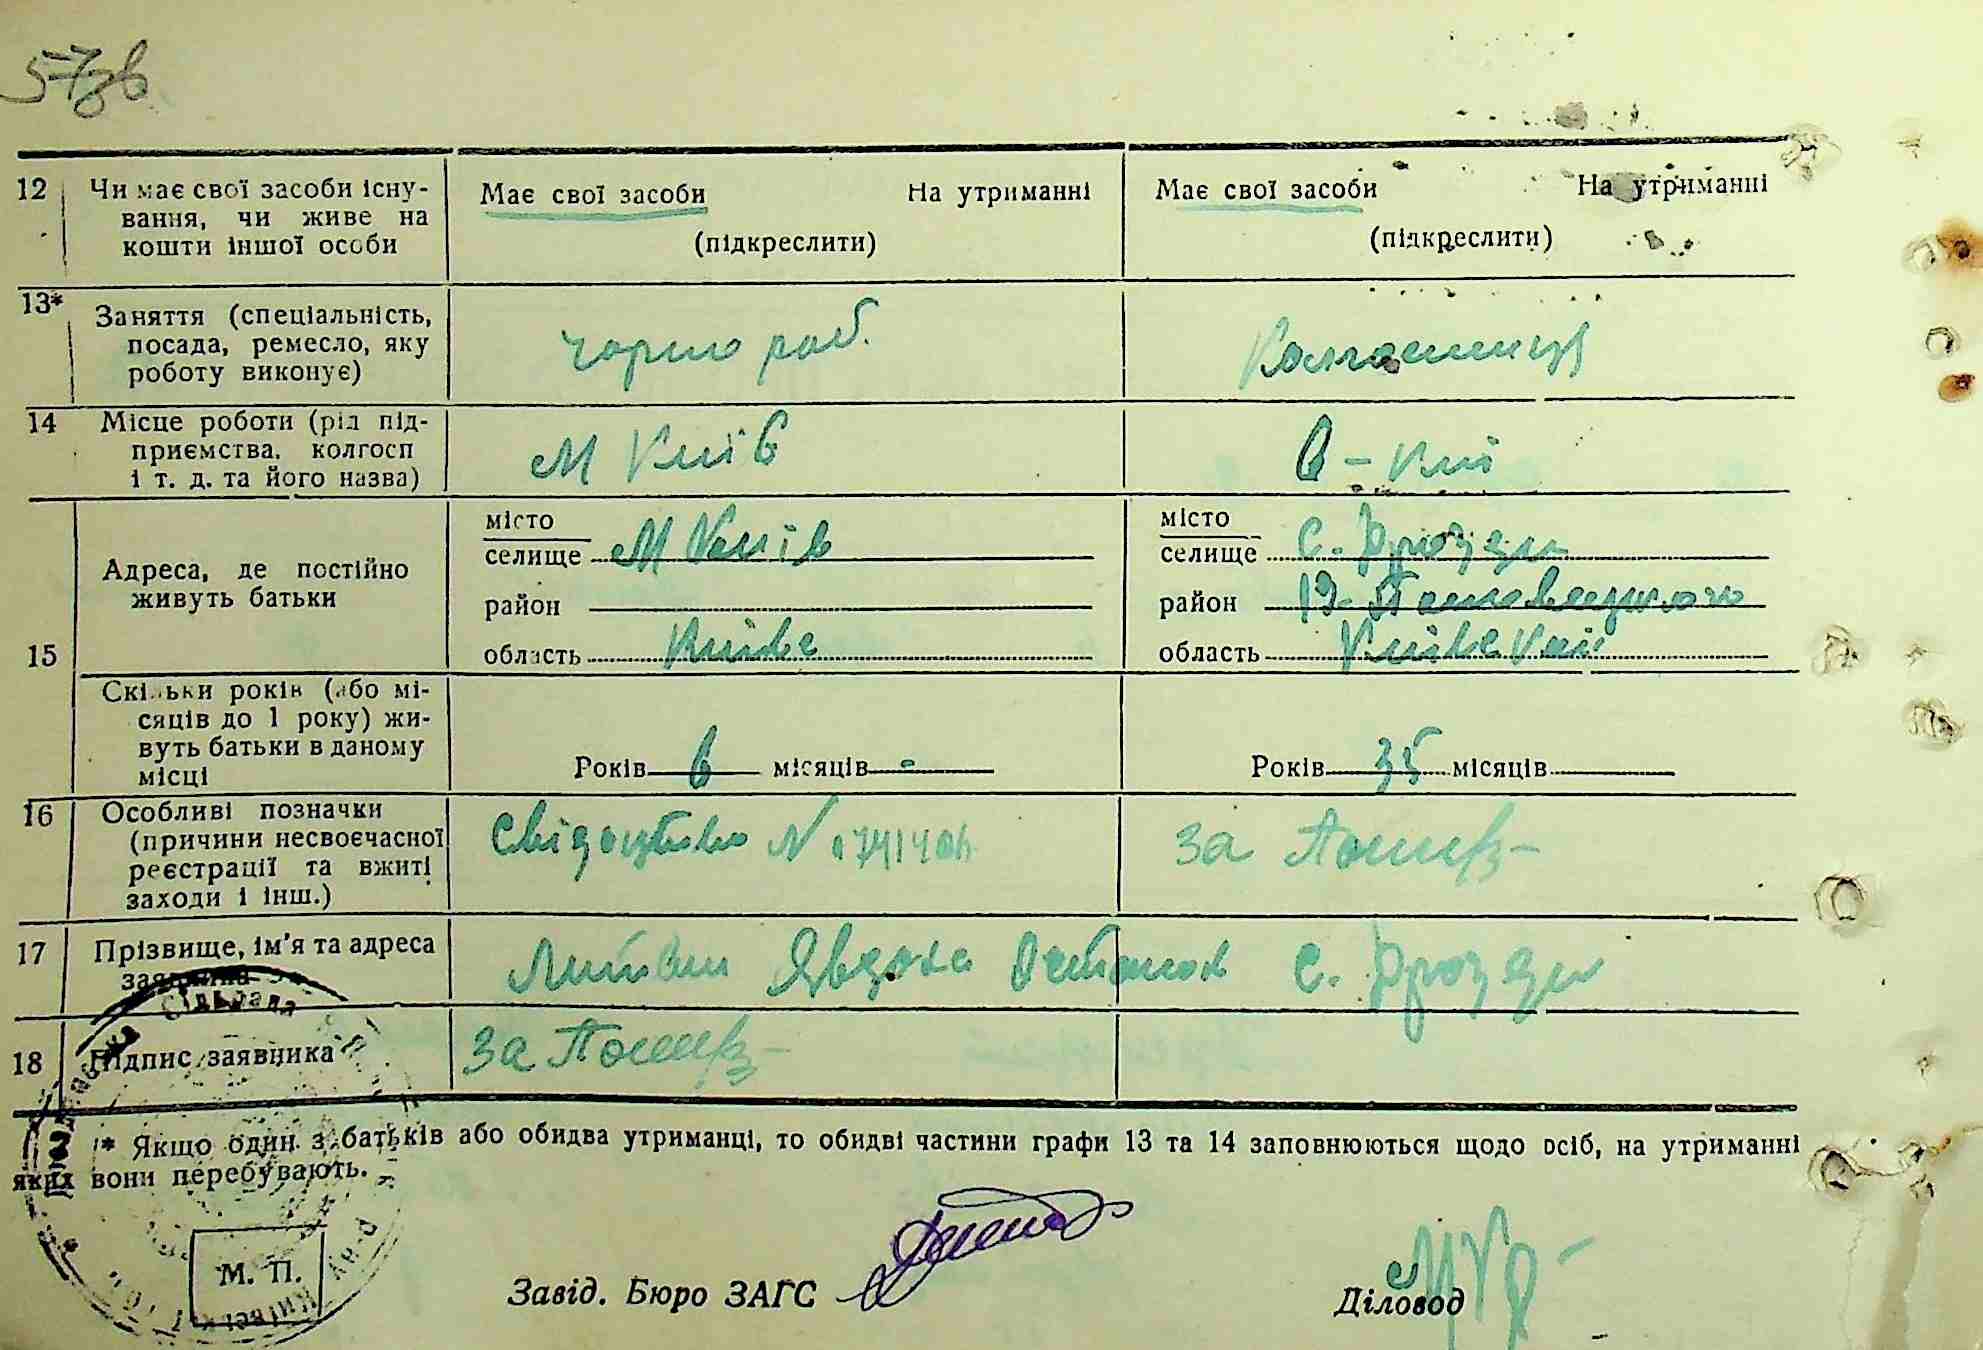 57зв
12 Чи має свої засоби існу-
вання, чи живе на
кошти іншої особи
Має свої засоби На утриманні
(підкреслити)
Має свої засоби На утриманні
(підкреслити)
13* Заняття (спеціальність,
посада, ремесло, яку
роботу виконує)
чорно роб.
Колгоспниця
14 Місце роботи (рід під-
приємства, колгосп
і т. д. та його назва)
м Київ
15 Адреса, де постійно
живуть батьки
місто
селище м Київ
район
область Київс
місто
селище С. Дрозди
район
область Київській
Скільки років (або мі-
сяців до 1 року) жи-
вуть батьки в даному
місці
Років 6 місяців -
Років 35 місяців
16 Особливі позначки
(причини несвоєчасної
реєстрації та вжиті
заходи і інш.)
Свідоцтво N
за
17 Прізвище, ім'я та адреса
заявника
Литвин Явдоха С. Дрозди
18 Підпис заявника
за
* Якщо один з батьків або обидва утриманці, то обидві частини графи 13 та 14 заповнюються щодо осіб, на утриманні
яких вони перебувають.
М. П.
Завід. Бюро ЗАГС
Діловод